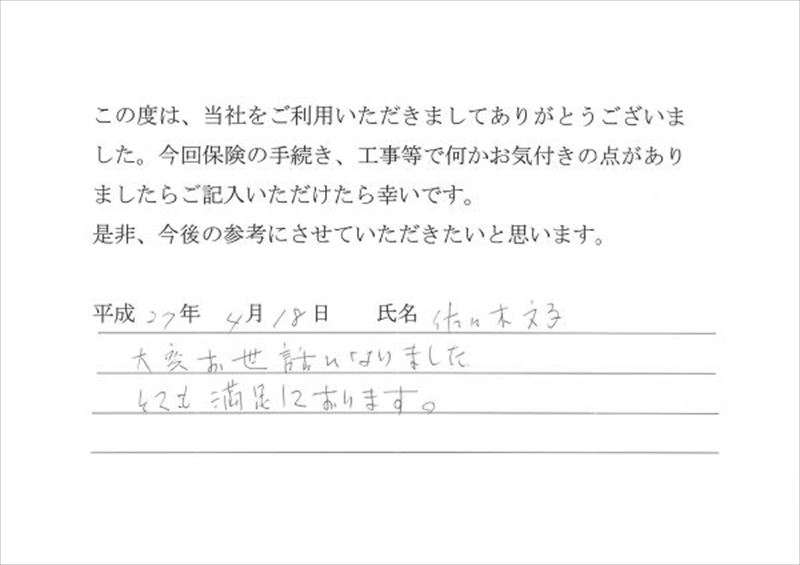 この度は、当社をご利用いただきましてありがとうございま
した。今回保険の手続き、工事等で何かお気付きの点があり
ましたらご記入いただけたら幸いです。
是非、今後の参考にさせていただきたいと思います。
平成27年 4月18日 氏名 佐々木文子
大変お世話になりました
とても満足しております。